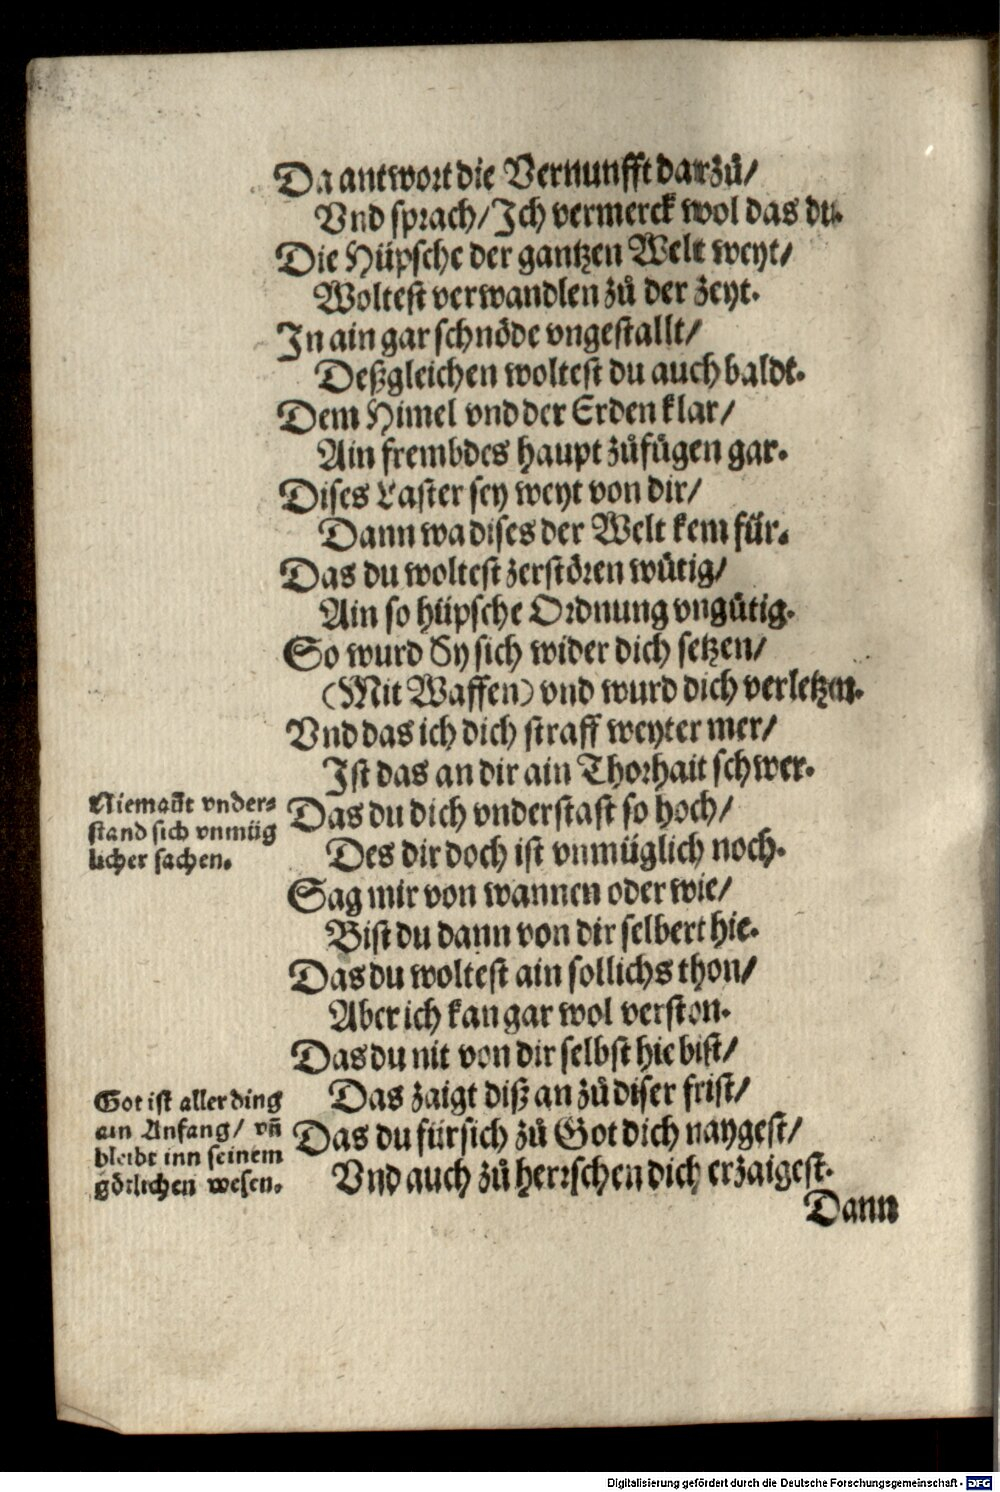 Da antwort die Vernunfft darzuͦ/
Vnd sprach/ Ich vermerck wol das du.
Die Hüpsche der gantzen Welt weyt/
Woltest verwandlen zuͦ der zeyt.
In ain gar schnöde vngestallt/
Deßgleichen woltest du auch baldt.
Dem Himel vnd der Erden klar/
Ain frembdes haupt zuͦfügen gar.
Dises Laster sey weyt von dir/
Dann wa dises der Welt kem für.
Das du woltest zerstören wütig/
Ain so hüpsche Ordnung vngütig.
So wurd Sy sich wider dich setzen/
(Mit Waffen) vnd wurd dich verletzen.
Vnd das ich dich straff weyter mer/
Ist das an dir ain Thorhait schwer.
Niemañt vnder-
stand sich vnmüg
licher sachen.
Das du dich vnderstast so hoch/
Des dir doch ist vnmüglich noch.
Sag mir von wannen oder wie/
Bist du dann von dir selbert hie.
Das du woltest ain sollichs thon/
Aber ich kan gar wol verston.
Das du nit von dir selbst hie bist/
Das zaigt diß an zuͦ diser frist/
Got ist aller ding
ain Anfang/ vñ
bleibt inn seinem
götlichen wesen.
Das du für sich zuͦ Got dich naygest/
Vnd auch zuͦ herrschen dich erzaigest.
Dann
Digitalisierung gefördert durch die Deutsche Forschungsgemeinschaft - DFG